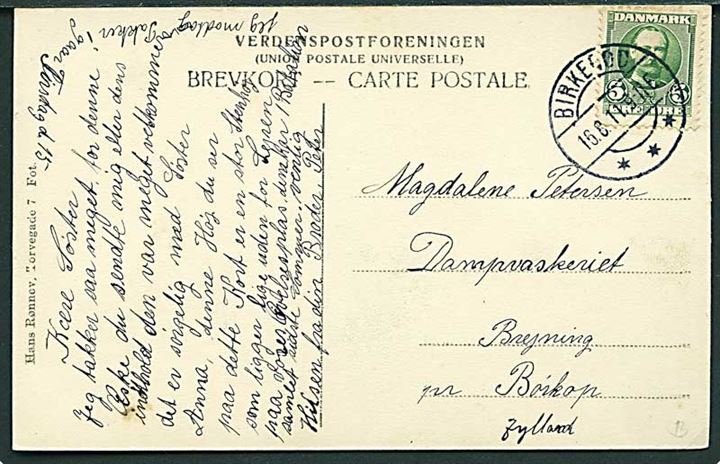 VERDENSPOSTFORENINGEN
(UNION POSTALE UNIVERSELLE)
BREVKORT -- CARTE POSTALE.
DANMARK
5 5
ØRE ØRE
BIRKERØD
16.6.11
Magdalene Petersen
Dampvaskeriet
Brejning
pr Börkop
Jylland
Hans Rønnov, Torvegade 7 Fot.
Torsdag d. 15
Kære Søster
Jeg takker saa meget for denne
Æske du sendte mig eller dens
indhold den var meget velkommen
det er sørgelig med Søster
Anna, denne Høj du ser
paa dette Kort er en stor Stenhøj
som ligger lige uden for Lejren
paa vores Øvelsesplads
samlet
Hilsen fra din Broder Peter
jeg modtog
Pakken i
gaar
B